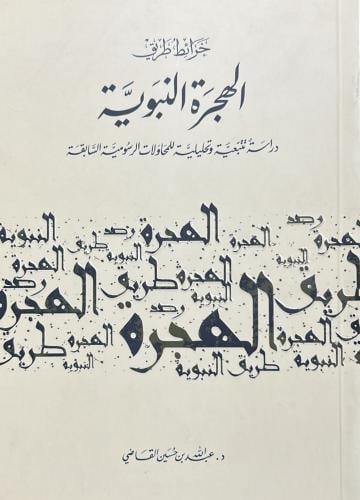 خرائط طريق
الهجرة النبوية
دراسة تتبعية وتحليلية للمحاولات الرسومية السابقة
رصد
النبوية رصد الهجرة الهجرة
النبوية طريق الهجرة النبوية
الهجرة طريق الهجرة طريق
رصد النبوية
الهجرة رصد الهجرة
طريق الهجرة النبوية الهجرة
النبوية طريق النبوية
د. عبدالله بن حسين القاضي